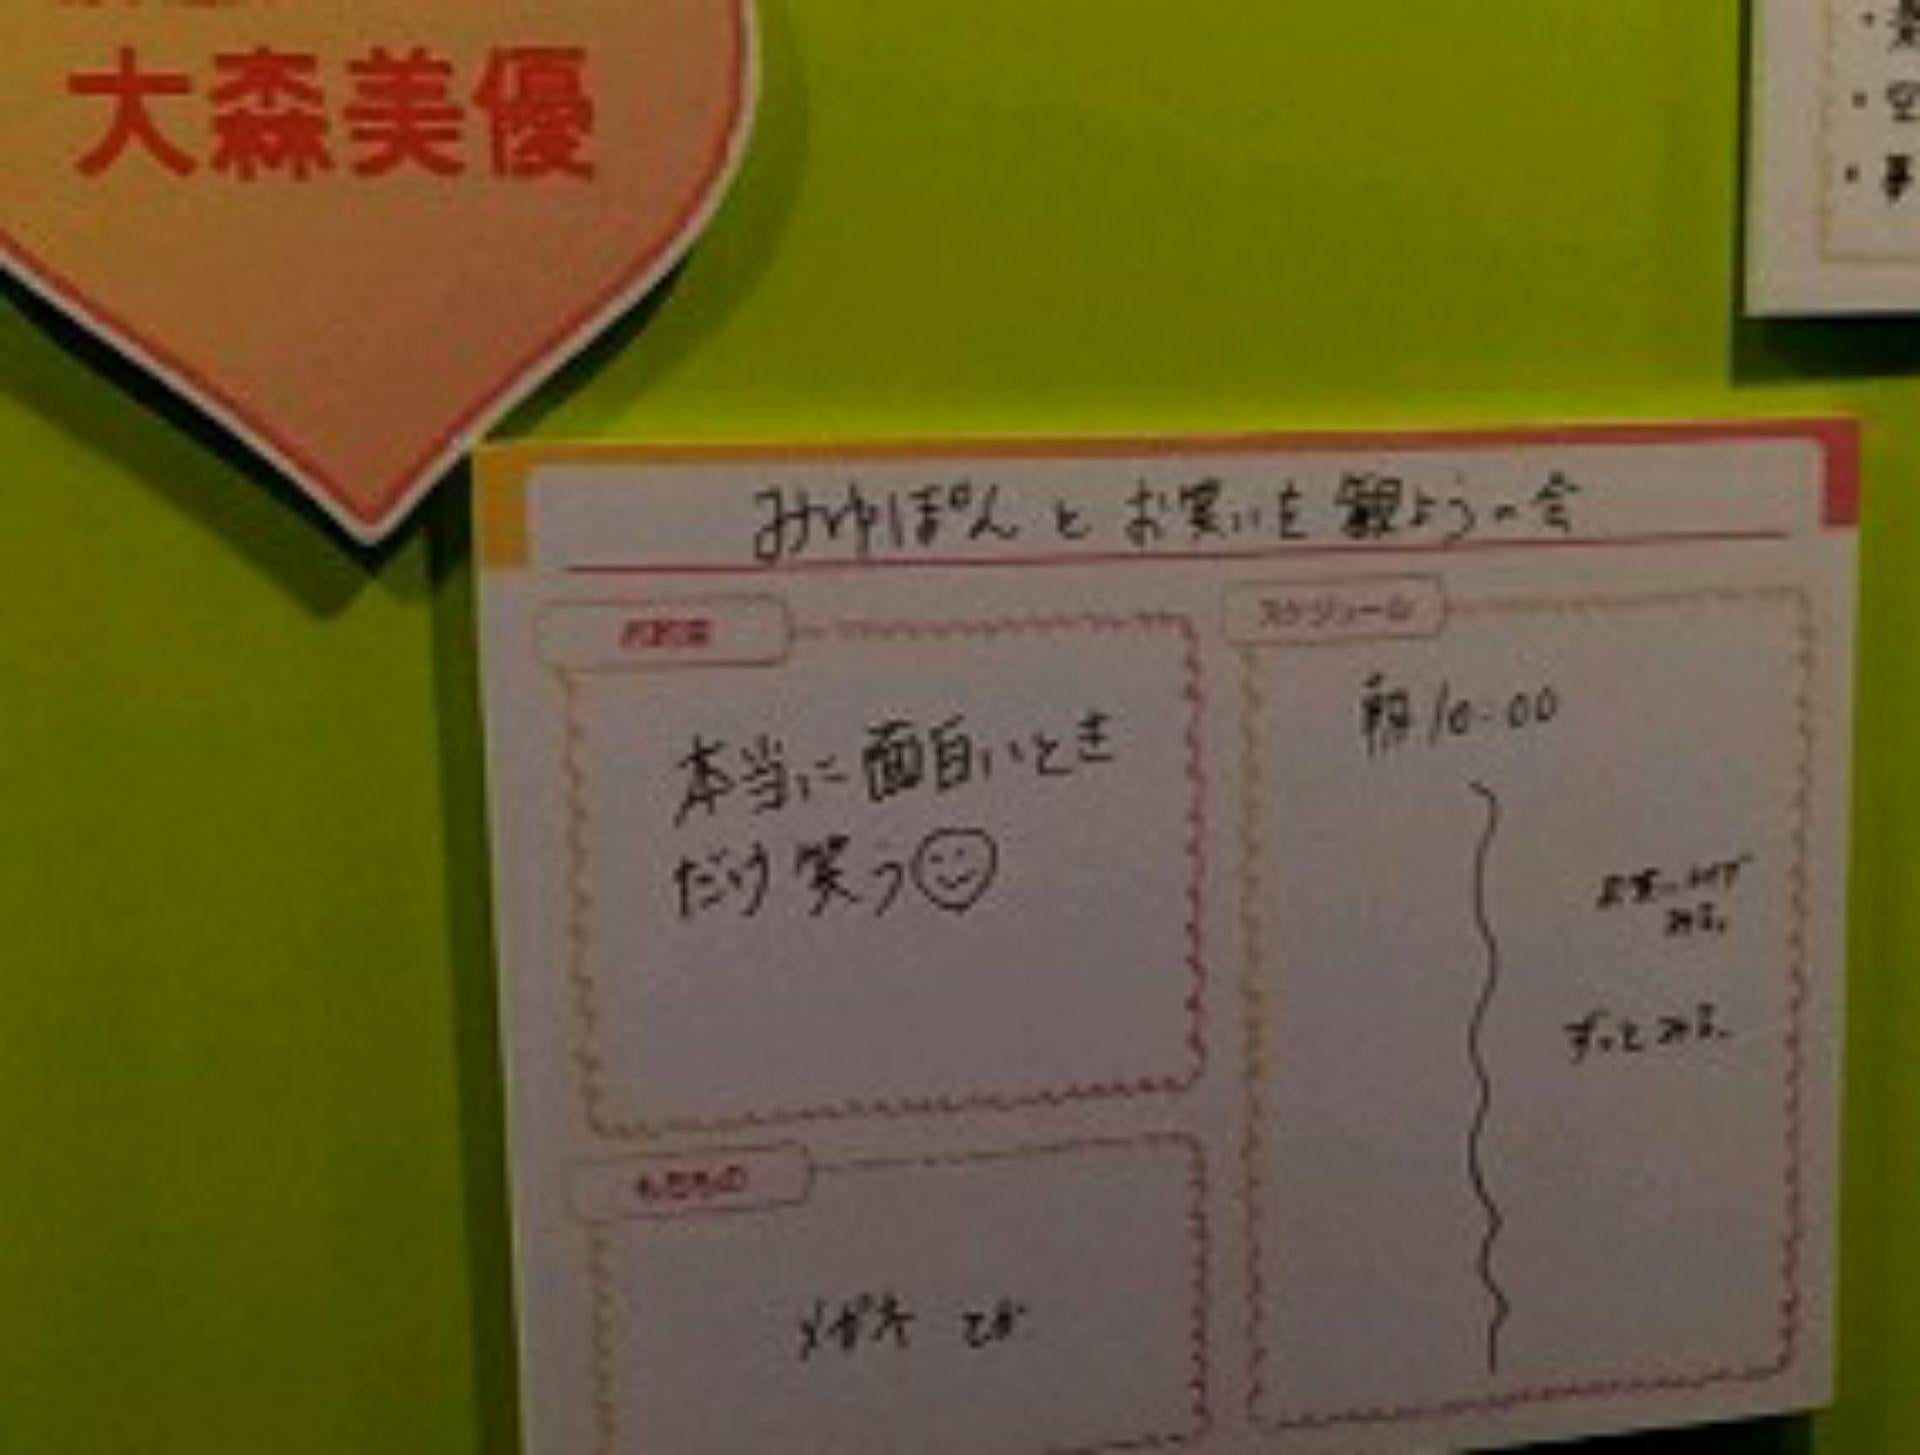 大森美優
みゆぽんとお笑いを観ようの会
お約束
本当に面白いとき
だけ笑う
スケジュール
朝10:00
お笑いライブ
みる。
ずっとみる。
もちもの
メガネとか
・空
・夢